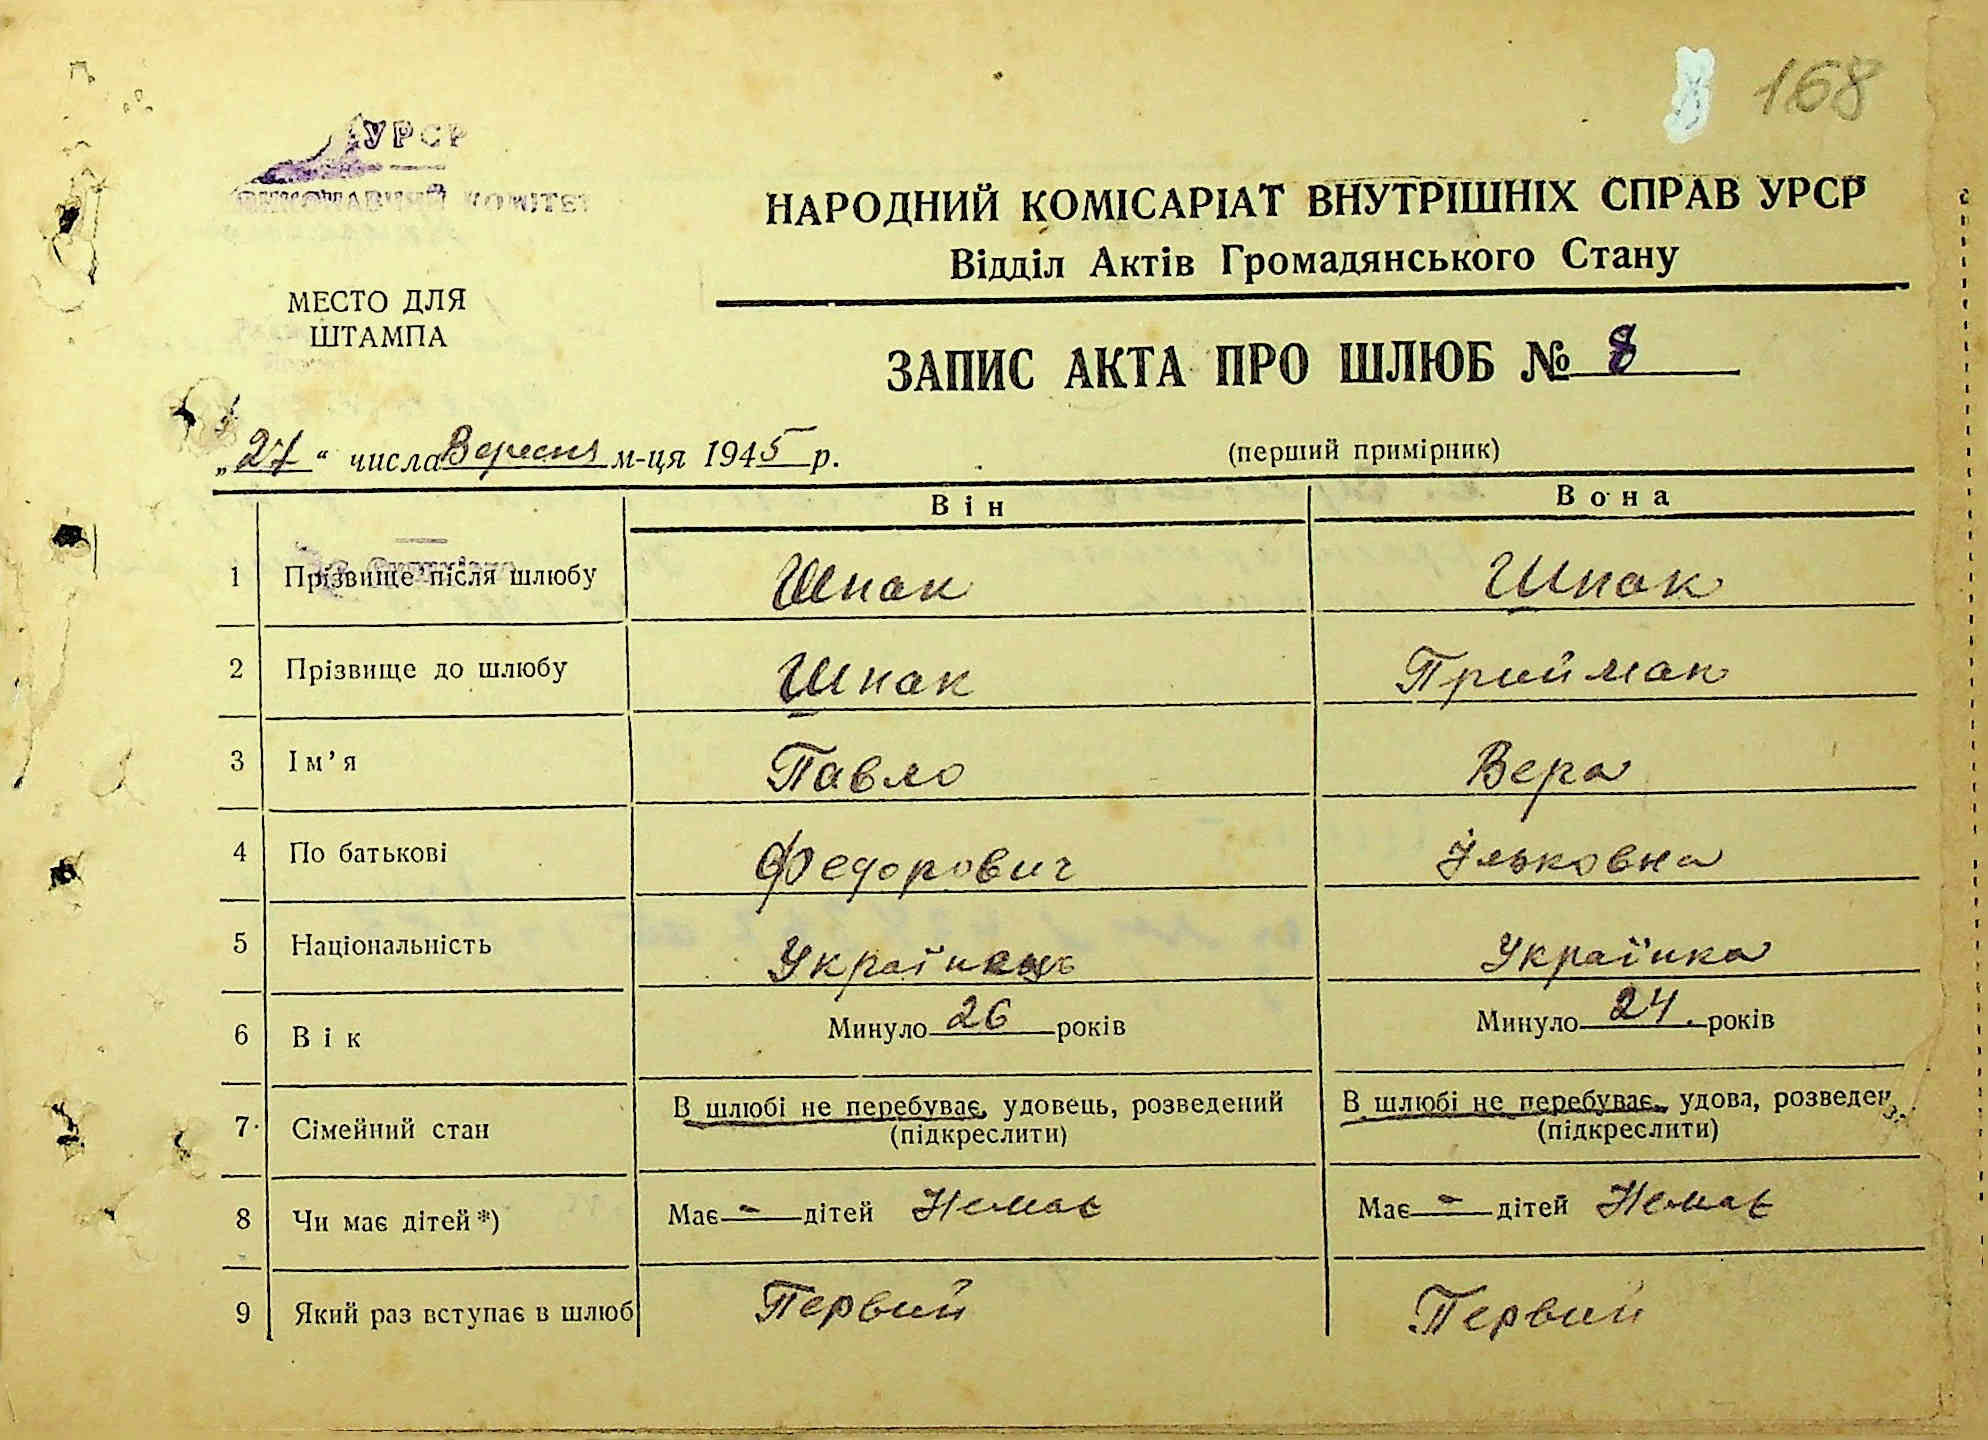 168
УРСР
ВИКОНАВЧИЙ КОМІТЕТ
НАРОДНИЙ КОМІСАРІАТ ВНУТРІШНІХ СПРАВ УРСР
Відділ Актів Громадянського Стану
МЕСТО ДЛЯ
ШТАМПА
ЗАПИС АКТА ПРО ШЛЮБ № 8
„27“ числа Вересня м-ця 1945 р.
(перший примірник)
Він Вона
1 Прізвище після шлюбу Шпак Шпак
2 Прізвище до шлюбу Шпак Приймак
3 Ім’я Павло Вера
4 По батькові Федорович Ільковна
5 Національність Українець Українка
6 Вік Минуло 26 років Минуло 24 років
7 Сімейний стан В шлюбі не перебуває, удовець, розведений В шлюбі не перебуває, удова, розведен
(підкреслити) (підкреслити)
8 Чи має дітей*) Має - дітей Немає Має - дітей Немає
9 Який раз вступає в шлюб Первий Первий